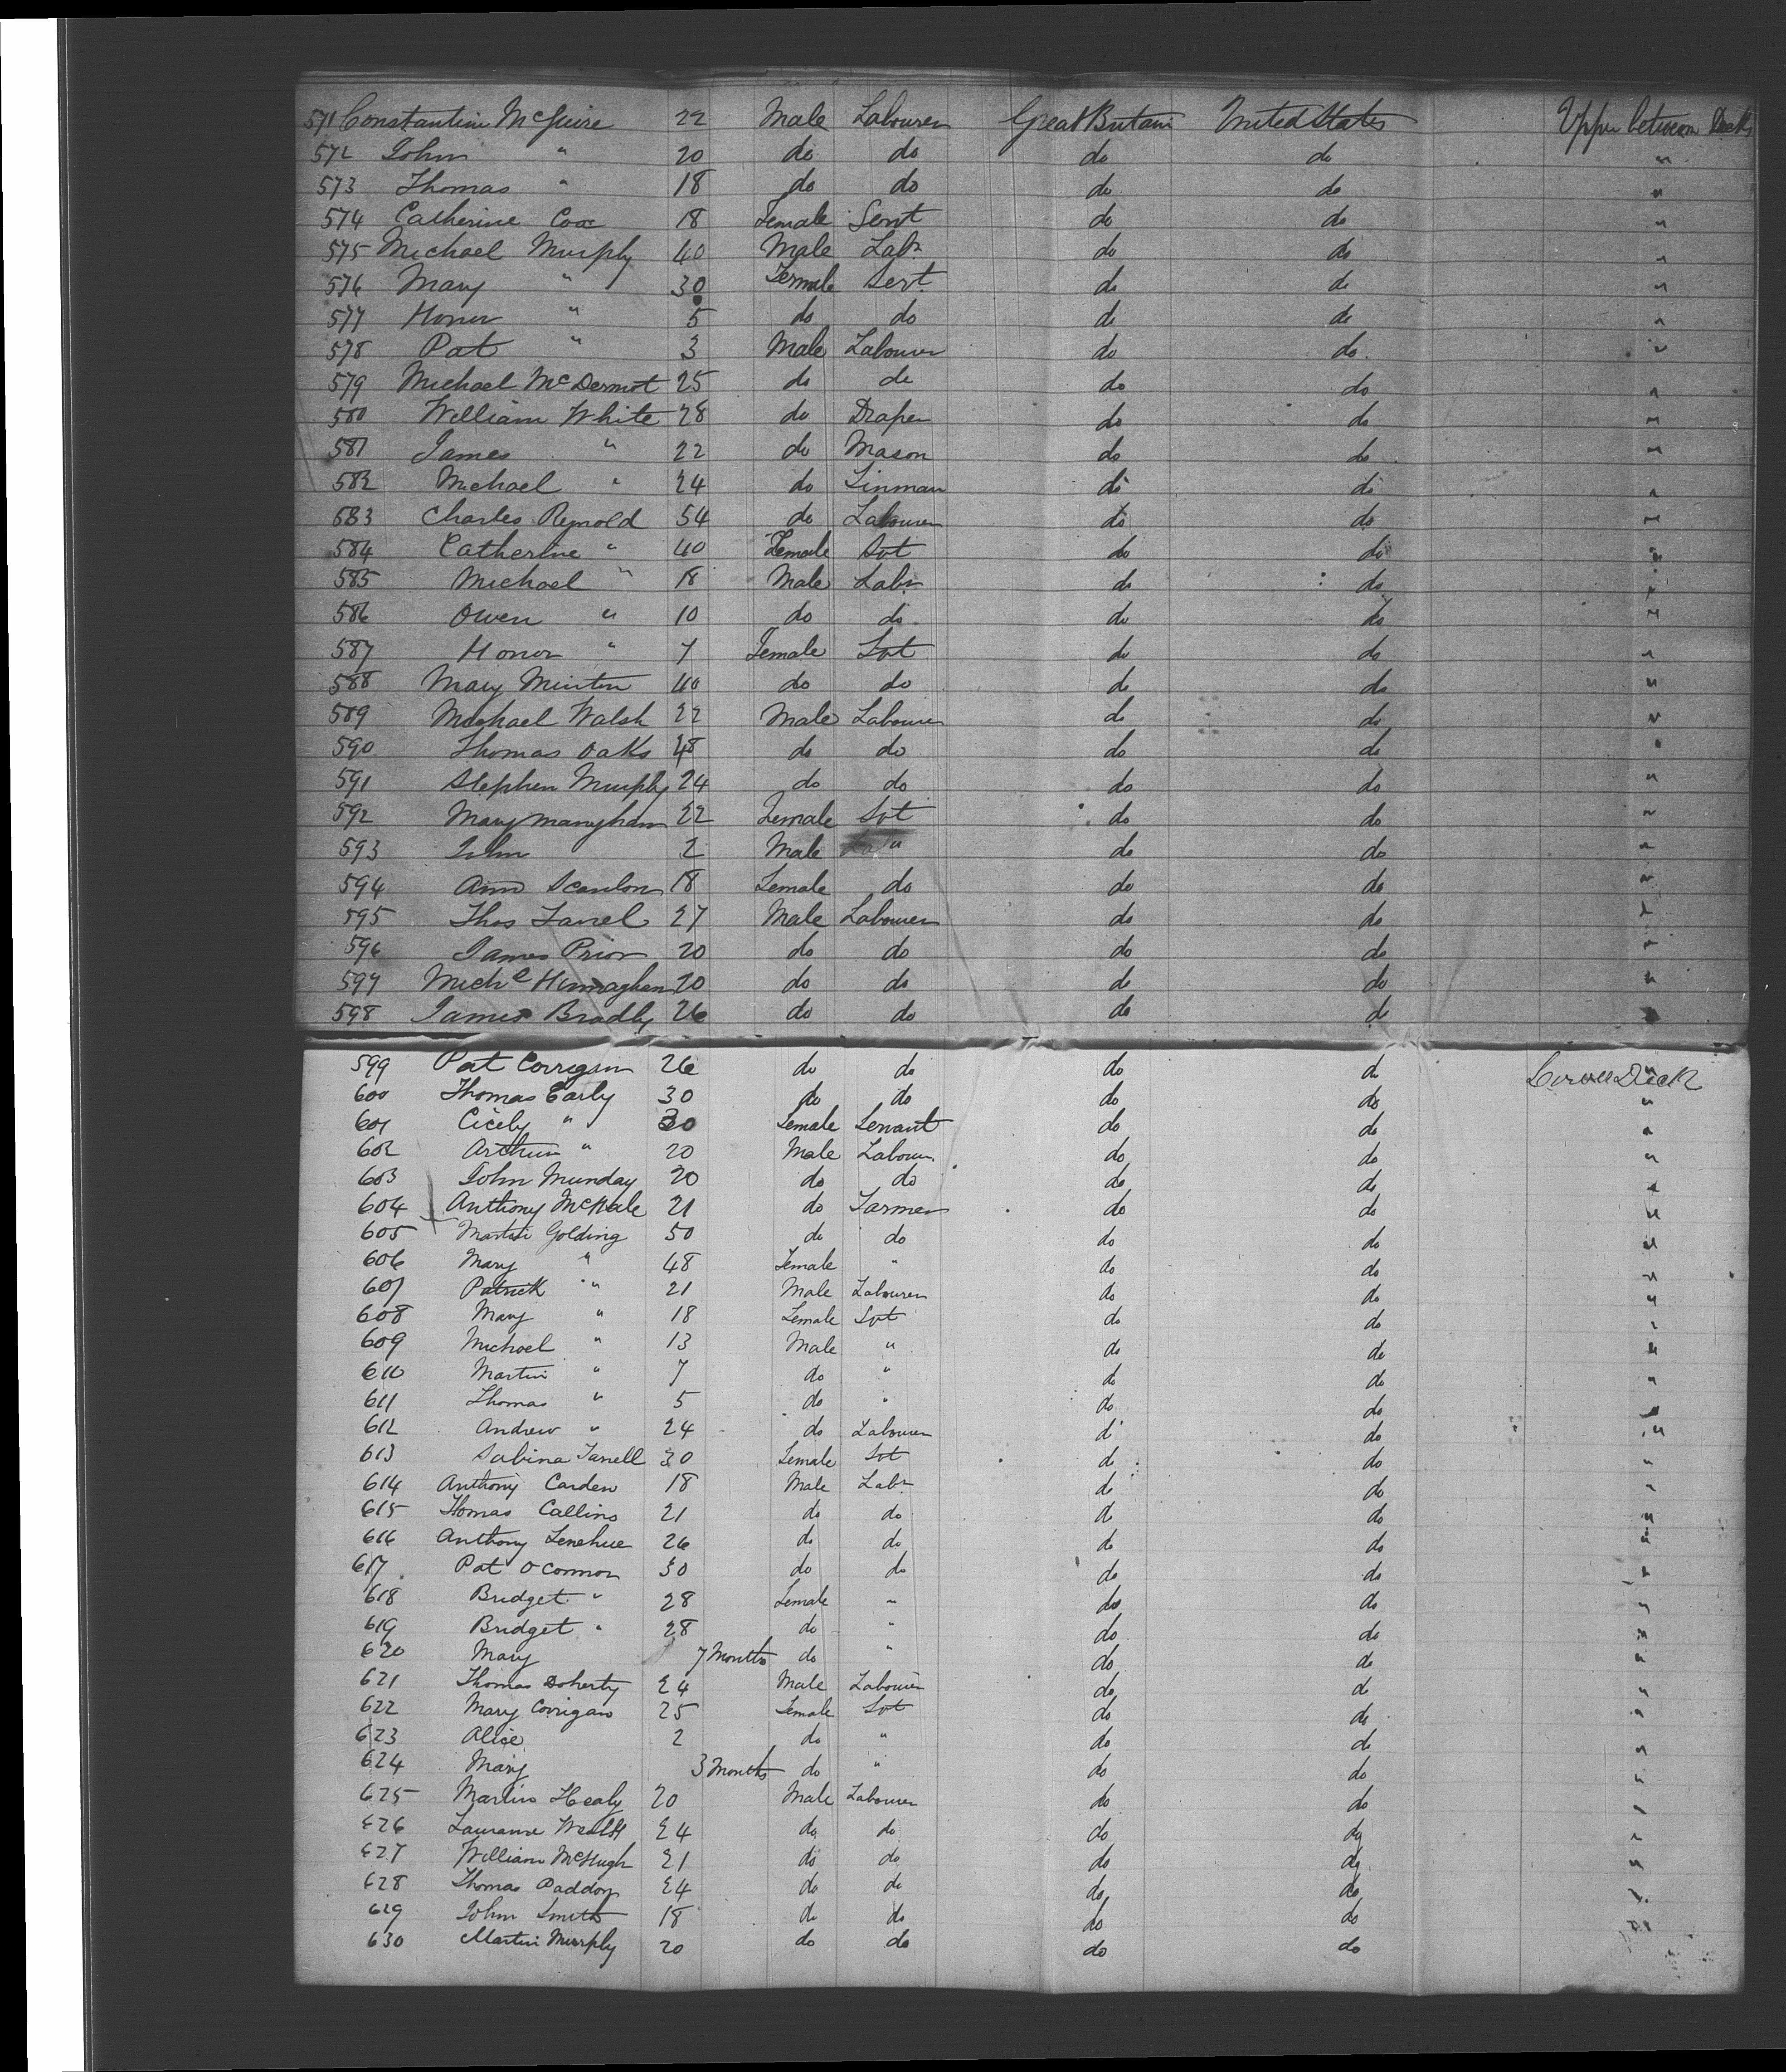 571 Constantine McGuire 22 Male Labourer Great Britain United States Upper between Decks
572 John " 20 do do do do "
573 Thomas " 18 do do do do "
574 Catherine Cox 18 Female Servt do do "
575 Michael Murphy 40 Male Labr do do "
576 Mary " 30 Female Servt do do "
577 Honor " 5 do do do do "
578 Pat " 3 Male Labourer do do "
579 Michael McDermot 25 do do do do "
580 William White 28 do Draper do do "
581 James " 22 do Mason do do "
582 Michael " 24 do Tinman do do "
583 Charles Reynold 54 do Labourer do do "
584 Catherine " 40 Female Svt do do "
585 Michael " 18 Male Labr do do "
586 Owen " 10 do do do do "
587 Honor " 7 Female Svt do do "
588 Mary Minton 40 do do do do "
589 Michael Walsh 22 Male Labourer do do "
590 Thomas Oaks do do do do "
591 Stephen Murphy 24 do do do do "
592 Mary 22 Female Svt do do "
593 John 2 Male " do do "
594 Ann Scanlon 18 Female do do do "
595 Thos Farrel 27 Male Labourer do do "
596 James Prior 20 do do do do "
597 Michl 20 do do do do "
598 James Bradly 26 do do do do "
599 Pat Corrigan 26 do do do do Lower Deck
600 Thomas Early 30 do do do do "
601 Cicely " 30 Female Servant do do "
602 Arthur " 20 Male Labour do do "
603 John Munday 20 do do do do "
604 Anthony McHale 21 do Farmer do do "
605 Martin Golding 50 do do do do "
606 Mary " 48 Female " do do "
607 Patrick " 21 Male Labourer do do "
608 Mary " 18 Female Svt do do "
609 Michael " 13 Male " do do "
610 Martin " 7 do " do do "
611 Thomas " 5 do " do do "
612 Andrew " 24 do Labourer do do "
613 Sabina Farrell 30 Female Svt do do "
614 Anthony Carden 18 Male Labr do do "
615 Thomas Collins 21 do do do do "
616 Anthony Lenehue 26 do do do do "
617 Pat OConnor 30 do do do do "
618 Bridget " 28 Female " do do "
619 Bridget " 28 do " do do "
620 Mary 7 Months do " do do "
621 Thomas Doherty 24 Male Labourer do do "
622 Mary Corrigan 25 Female Svt do do "
623 Alice 2 do " do do "
624 Mary 3 Months do " do do "
625 Martin Healy 20 Male Labourer do do "
626 Laurance 24 do do do do "
627 William McHugh 21 do do do do "
628 Thomas Paddon 24 do do do do "
629 John Smith 18 do do do do "
630 Martin Murphy 20 do do do do